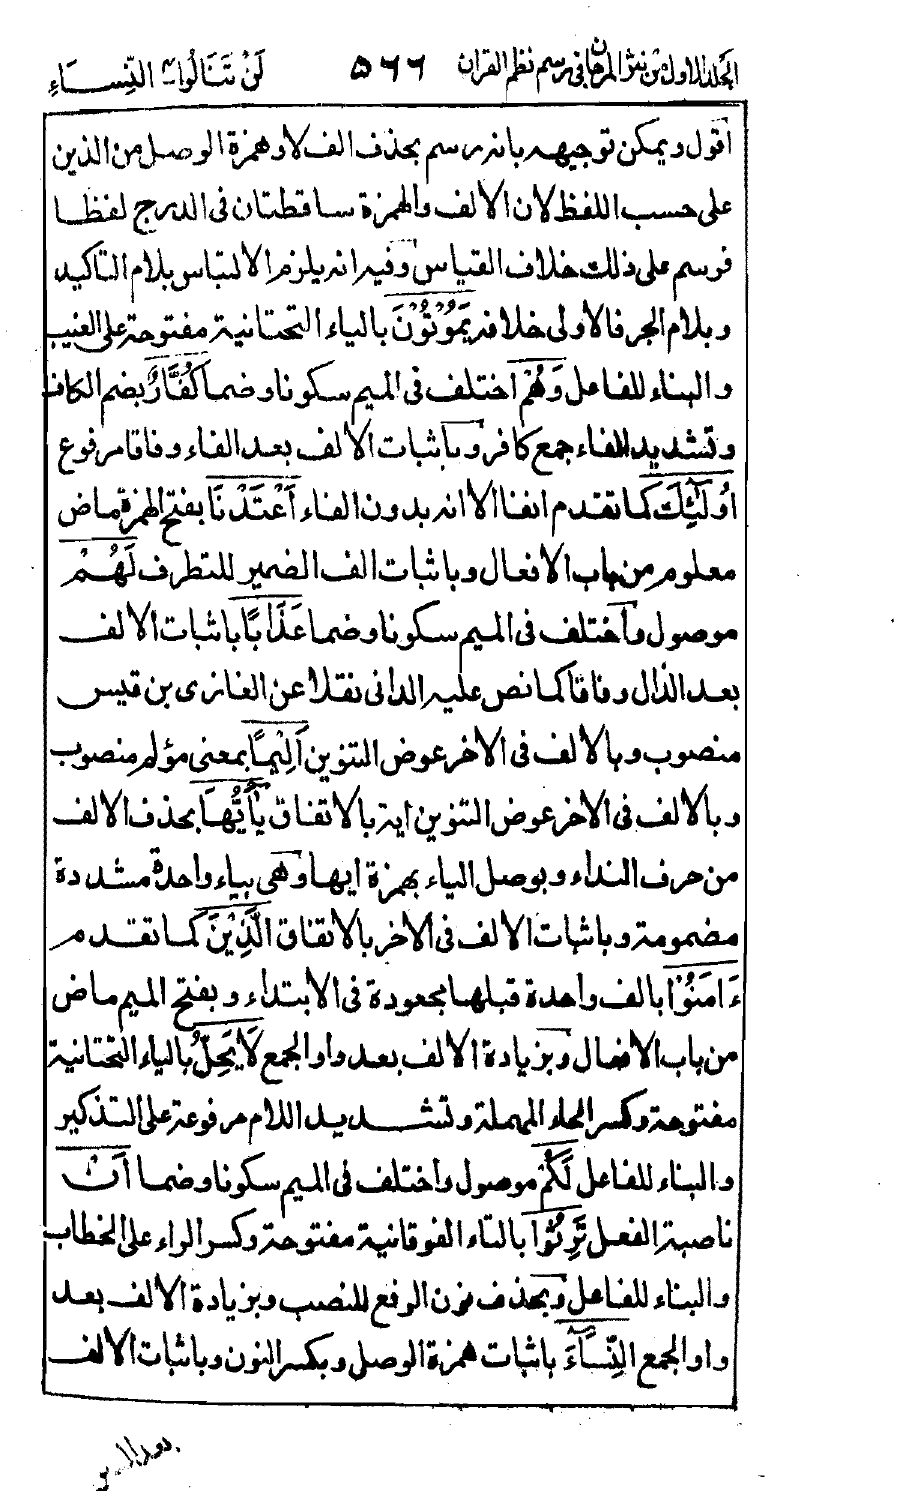 الجلد الاول من نثر المرجان في رسم نظم القران ٥٦٦ لن تنالوا النساء
اقول ويمكن توجيهه بانه رسم بحذف الف لا وهمزة الوصل من الذين
على حسب اللفظ لان الالف والهمزة ساقطتان في الدرج لفظا
فرسم على ذلك خلاف القياس وفيه انه يلزم الالتباس بلام التاكيد
وبلام الجر فالاولى خلافه يَمُوْتُوْنَ بالياء التحتانية مفتوحة على الغيب
والبناء للفاعل وَهُمْ اختلف في الميم سكونا وضما كُفَّارٌ بضم الكاف
وتشديد الفاء جمع كافر وباثبات الالف بعد الفاء وفاقا مرفوع
اُولٰٓئِكَ كما تقدم انفا الا انه بدون الفاء اَعْتَدْنَا بفتح الهمزة ماض
معلوم من باب الافعال وباثبات الف الضمير للتطرف لَهُمْ
موصول واختلف في الميم سكونا وضما عَذَابًا باثبات الالف
بعد الذال وفاقا كما نص عليه الداني نقلا عن الغازي بن قيس
منصوب وبالالف في الاخر عوض التنوين اَلِيْمًا بمعنى مؤلم منصوب
وبالالف في الاخر عوض التنوين اية بالاتفاق يٰٓاَيُّهَا بحذف الالف
من حرف النداء وبوصل الياء بهمزة ايها وهي بياء واحدة مشددة
مضمومة وباثبات الالف في الاخر بالاتفاق الَّذِيْنَ كما تقدم
ءَامَنُوْا بالف واحدة قبلها مجعودة في الابتداء وبفتح الميم ماض
من باب الافعال وبزيادة الالف بعد واو الجمع لَا يَحِلُّ بالياء التحتانية
مفتوحة وكسر الحاء المهملة وتشديد اللام مرفوعة على التذكير
والبناء للفاعل لَكُمْ موصول واختلف في الميم سكونا وضما اَنْ
ناصبة الفعل تَرِثُوْا بالتاء الفوقانية مفتوحة وكسر الراء على الخطاب
والبناء للفاعل وبحذف نون الرفع للنصب وبزيادة الالف بعد
واو الجمع النِّسَآءَ باثبات همزة الوصل وبكسر النون وباثبات الالف
بعد السين